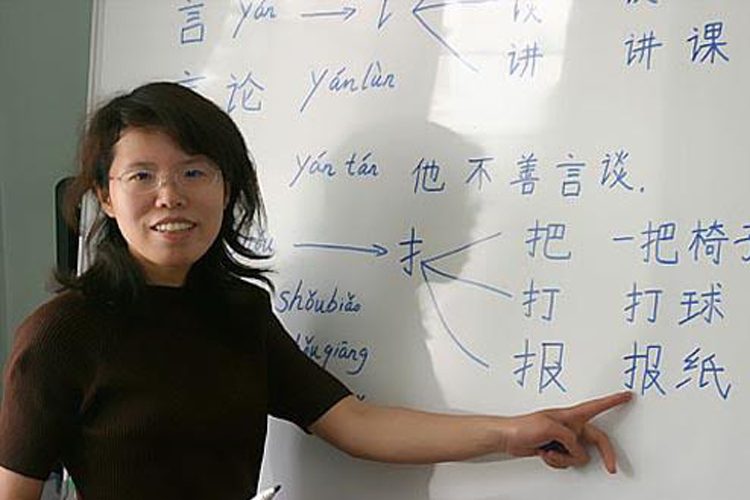 言 yán → 讠 谈
讲 讲课
言论 yánlùn
yántán 他不善言谈.
→ 扌 把 一把椅子
shǒubiǎo 打 打球
报 报纸